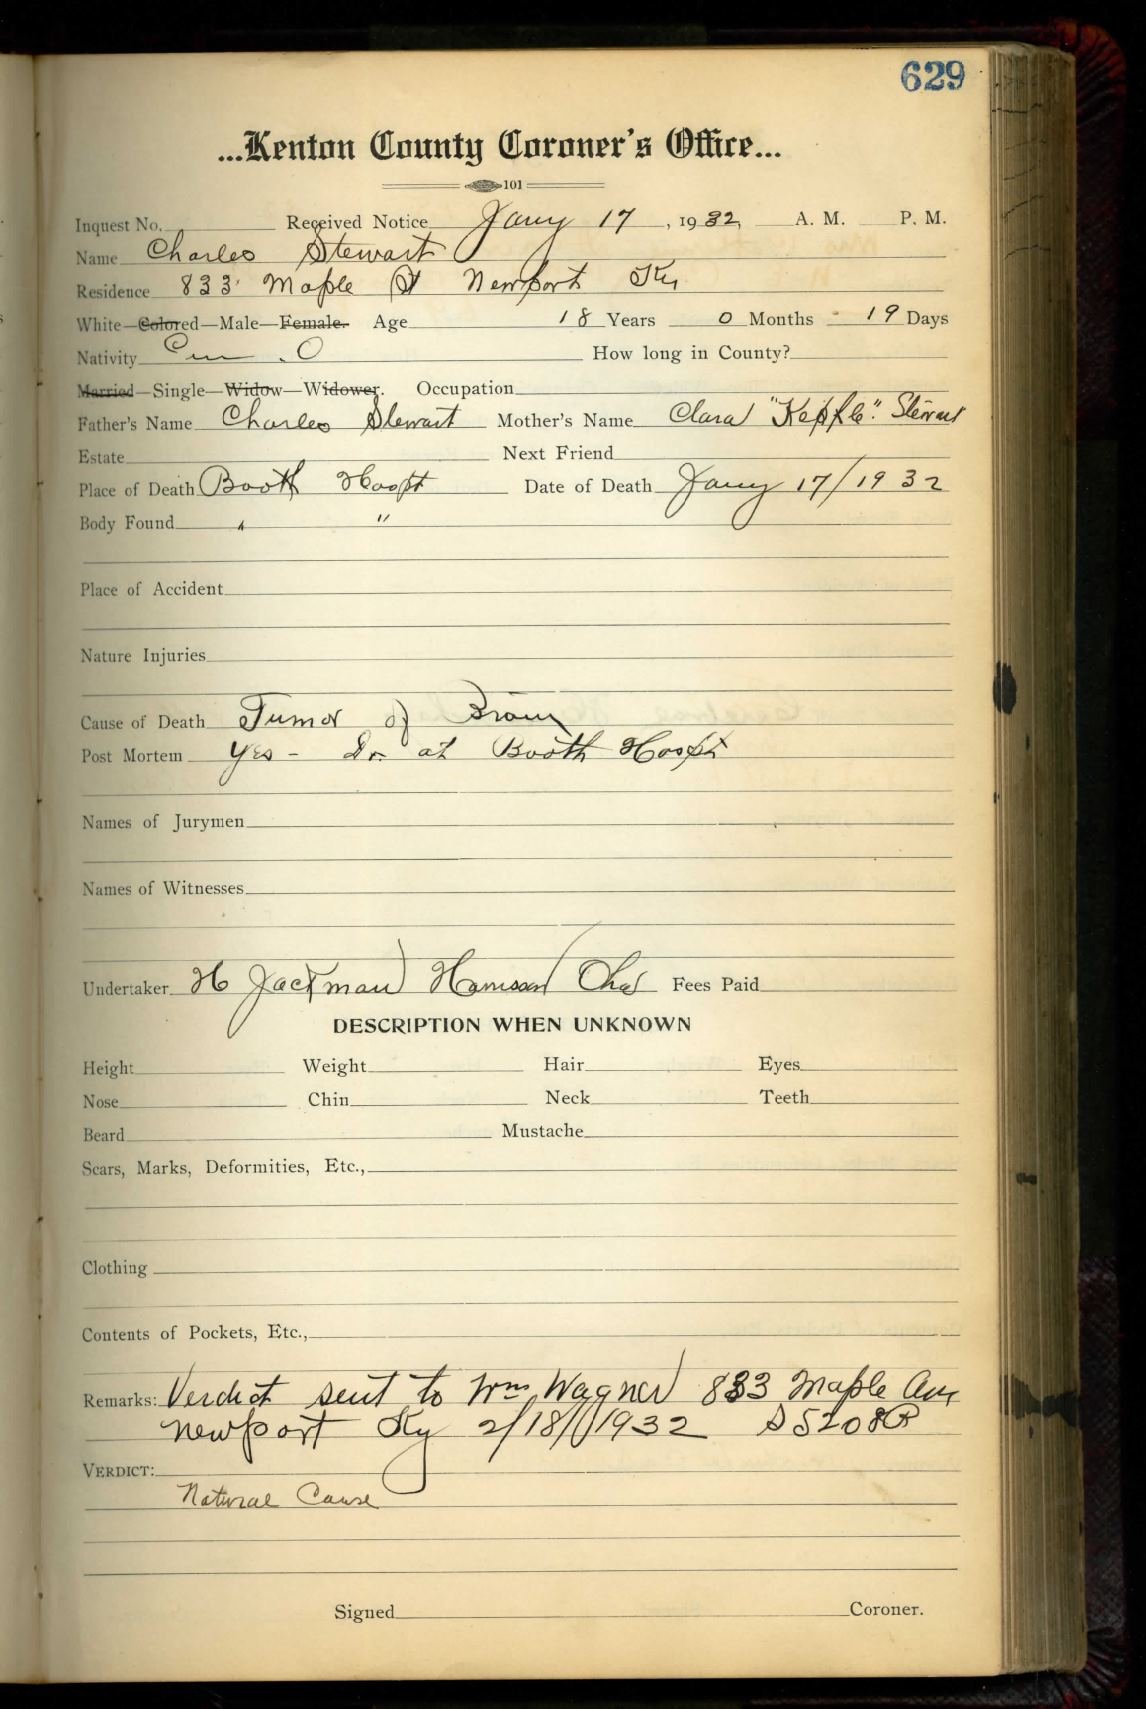 629
...Kenton County Coroner's Office...
101
Inquest No. Received Notice Jany 17, 1932, A. M. P. M.
Name Charles Stewart
Residence 833 Maple St Newport Ky
White—Colored—Male—Female. Age 18 Years 0 Months 19 Days
Nativity Cin. O How long in County?
Married—Single—Widow—Widower. Occupation
Father's Name Charles Stewart Mother's Name Clara "Kepple" Stewart
Estate Next Friend
Place of Death Booth Hospt Date of Death Jany 17/1932
Body Found " "
Place of Accident
Nature Injuries
Cause of Death Tumor of Brain
Post Mortem yes - Dr. at Booth Hospt
Names of Jurymen
Names of Witnesses
Undertaker H Jackman Fees Paid
DESCRIPTION WHEN UNKNOWN
Height Weight Hair Eyes
Nose Chin Neck Teeth
Beard Mustache
Scars, Marks, Deformities, Etc.,
Clothing
Contents of Pockets, Etc.,
Remarks: Verdict sent to Wm Wagner 833 Maple Ave
Newport Ky 2/18/1932 S5208R
VERDICT:
Natural Cause
Signed Coroner.